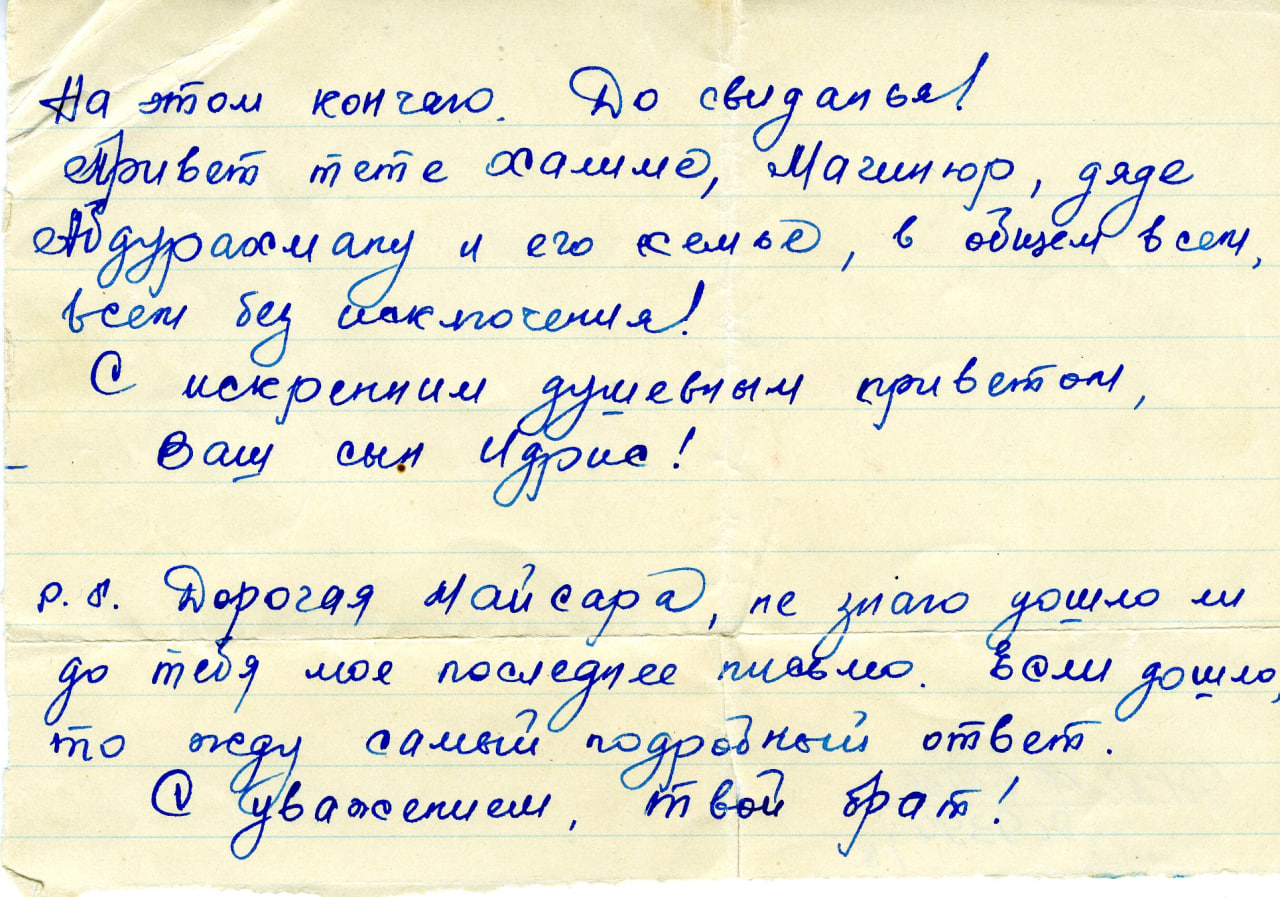 На этом кончаю. До свиданья!
Привет тете Халиме, Магинюр, дяде
Абдурахману и его семье, в общем всем,
всем без исключения!
С искренним душевным приветом,
Ваш сын Идрис!
p.s. Дорогая Майсара, не знаю дошло ли
до тебя мое последнее письмо. Если дошло,
то жду самый подробный ответ.
С уважением, твой брат!